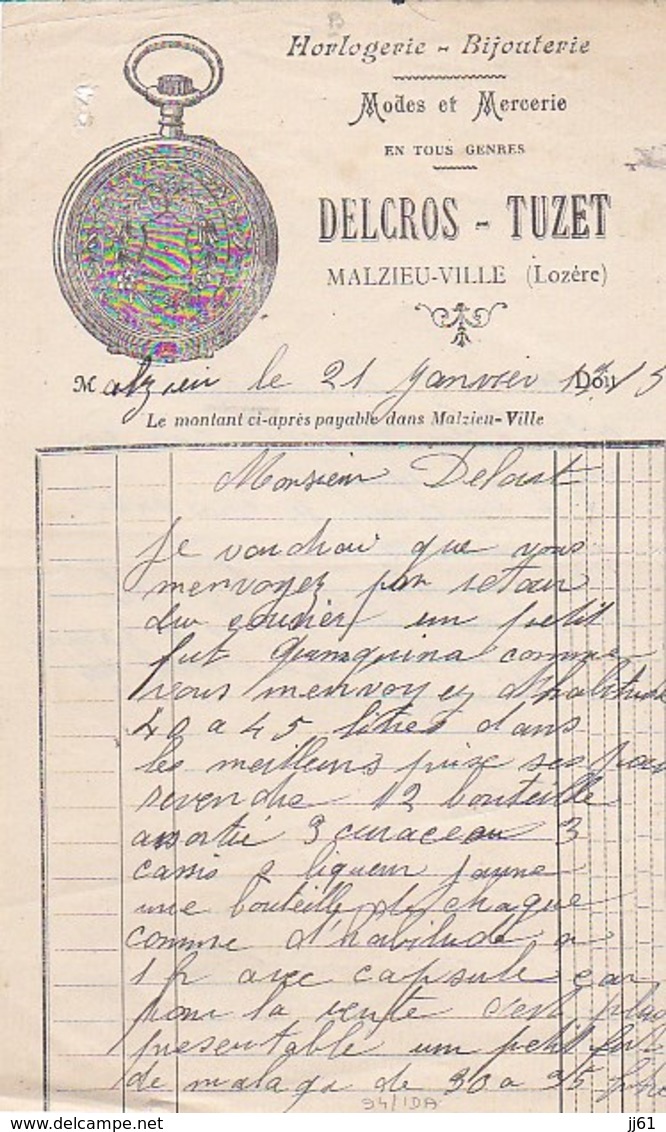 Horlogerie - Bijouterie
Modes et Mercerie
EN TOUS GENRES
DELCROS - TUZET
MALZIEU-VILLE (Lozère)
Malzieu le 21 Janvier Doit
Le montant ci-après payable dans Malzieu-Ville
Monsieur
Je voudrai que vous
menvoyez par retour
du courier un petit
fut comme
vous menvoyez d'habitude
40 a 45 litres dans
les meilleurs prix
revendre 12 bouteille
assortie 3 curaceau 3
cassis 2 liqueur jaune
une bouteille de chaque
comme d'habitude a
1 fr avec capsule car
pour la vente c'est plus
presentable un petit fut
de malaga de 30 a 35
94/IDA
jj61